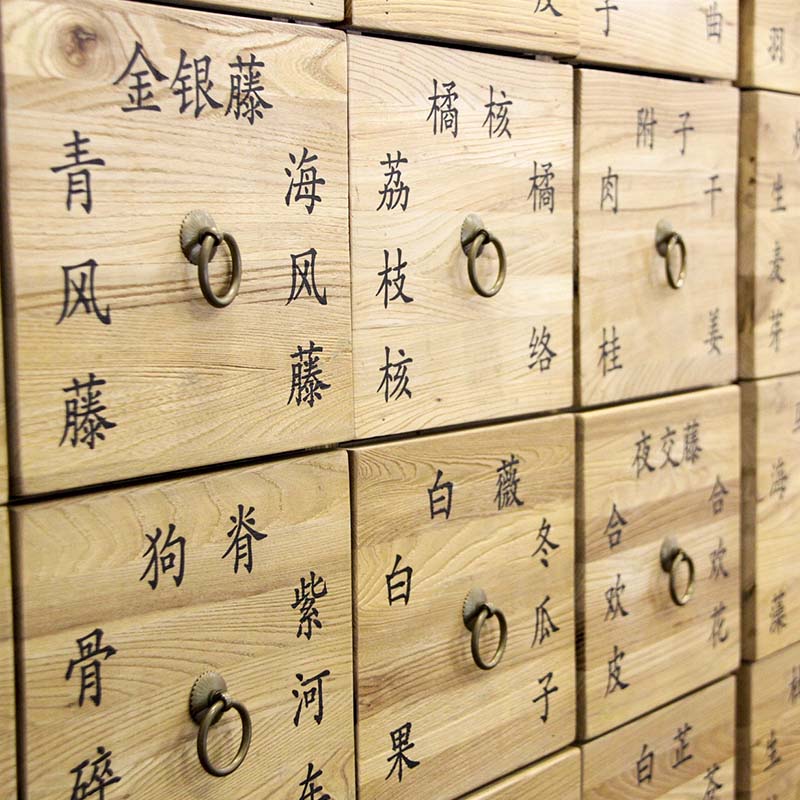 皮
子
曲
羽
金银藤
青风藤
海风藤
橘核
荔枝核
橘络
附子
肉桂
干姜
生麦芽
狗脊
骨碎
紫河
白薇
白果
冬瓜子
夜交藤
合欢皮
合欢花
海藻
白芷
生